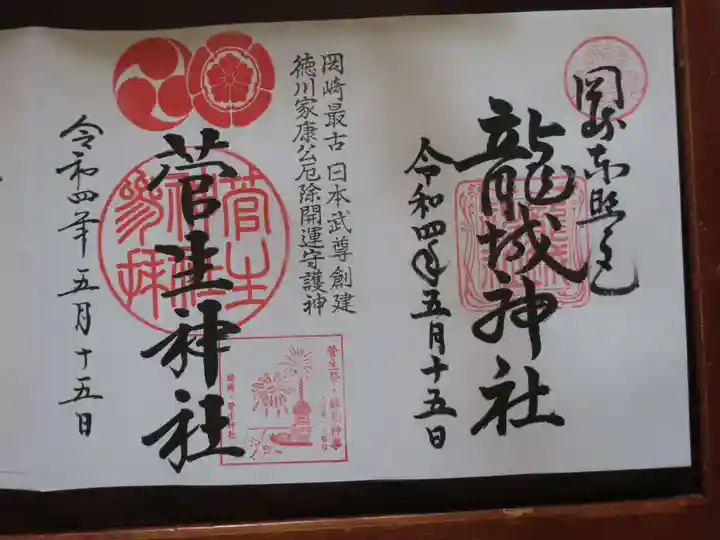 岡崎東照宮
龍城神社
令和四年五月十五日
岡崎最古 日本武尊創建
徳川家康公厄除開運守護神
菅生神社
菅生神社参拝
令和四年五月十五日
岡崎・菅生神社